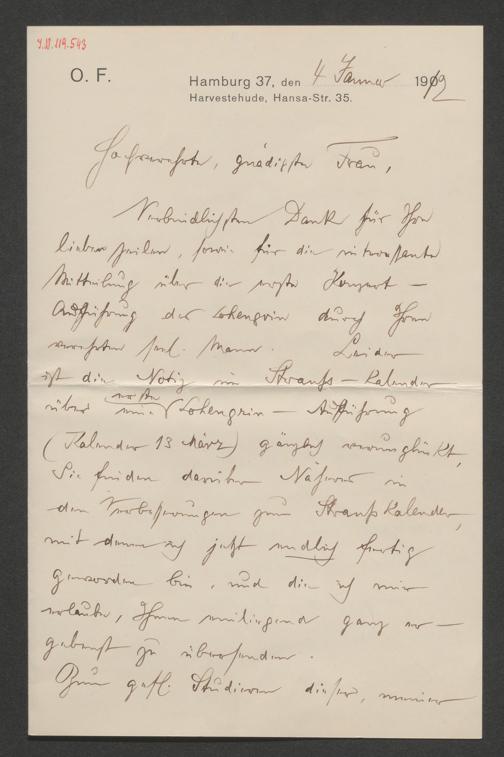 O. F.
Hamburg 37, den 4 Januar 1912
Harvestehude, Hansa-Str. 35.
Hochverehrte, gnädigste Frau,
Verbindlichsten Dank für Ihre
lieben Zeilen, sowie für die interessante
Mitteilung über die erste Konzert-
Aufführung des Lohengrin durch Ihren
verehrten sel. Mann. Leider
ist die Notiz im Strauß-Kalender
über eine erste Lohengrin-Aufführung
(Kalender 13 März) gänzlich verunglückt,
Sie finden darüber Näheres in
den Verbesserungen zum Strauß Kalender,
mit denen ich jetzt endlich fertig
geworden bin, und die ich mir
erlaube, Ihnen einliegend ganz er-
gebenst zu übersenden.
Zum gefl. Studieren dieser, meiner